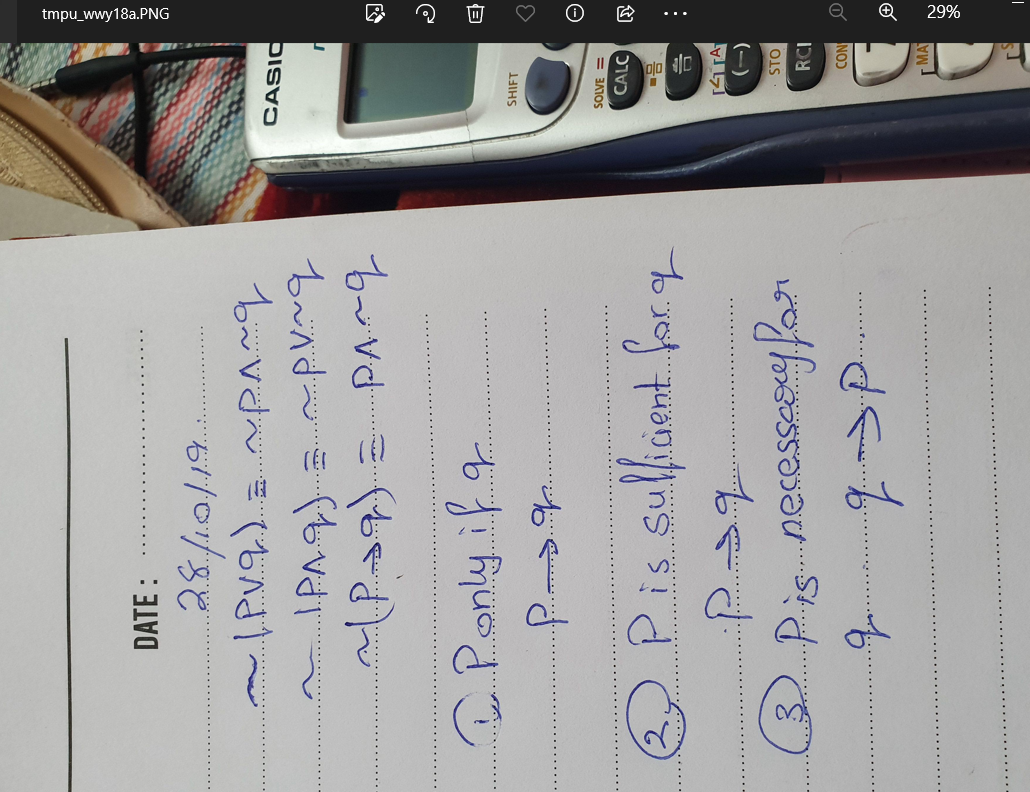 tmpu_wwy18a.PNG
29%
CASIO
SHIFT
SOLVE =
CALC
(−)
STO
RCL
CON
DATE :
28/10/19
~(PVq) ≡ ~P∧~q
~(P∧q) ≡ ~PV~q
~(P→q) ≡ P∧~q
① P only if q
P→q
② P is sufficient for q
P→q
③ P is necessary for
q q→P